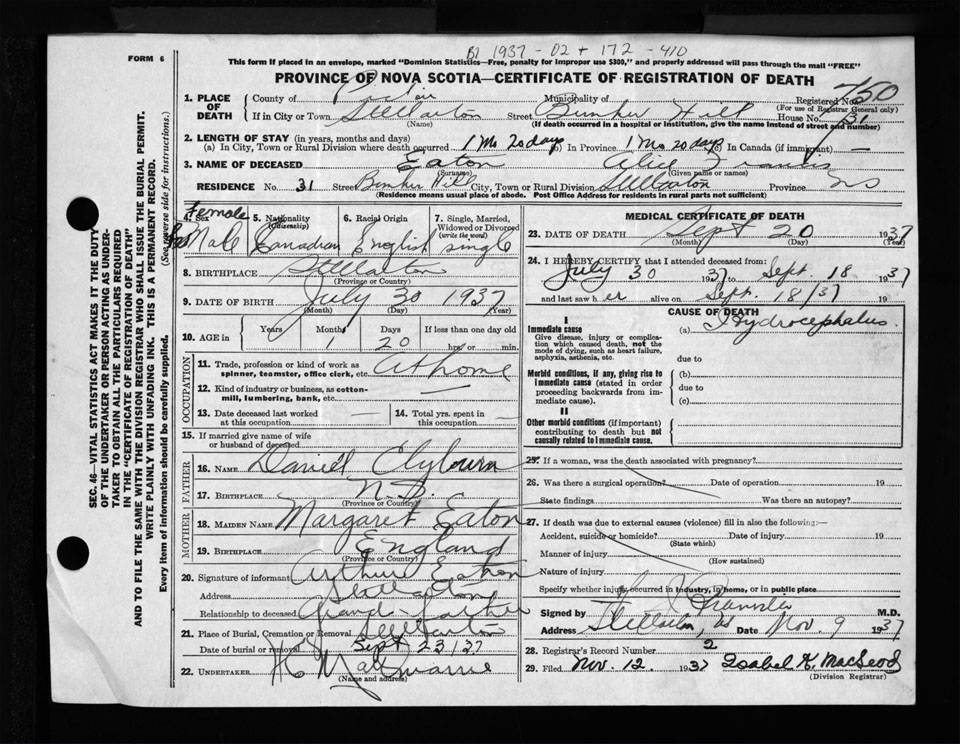 1937 - 02 + 172 - 410
FORM 6
This form if placed in an envelope, marked "Dominion Statistics—Free, penalty for improper use $300," and properly addressed will pass through the mail "FREE"
PROVINCE OF NOVA SCOTIA—CERTIFICATE OF REGISTRATION OF DEATH
SEC. 46—VITAL STATISTICS ACT MAKES IT THE DUTY
OF THE UNDERTAKER OR PERSON ACTING AS UNDER-
TAKER TO OBTAIN ALL THE PARTICULARS REQUIRED
IN THE "CERTIFICATE OF REGISTRATION OF DEATH"
AND TO FILE THE SAME WITH THE DIVISION REGISTRAR WHO SHALL ISSUE THE BURIAL PERMIT.
WRITE PLAINLY WITH UNFADING INK. THIS IS A PERMANENT RECORD.
Every item of information should be carefully supplied. (See reverse side for instructions.)
1. PLACE OF DEATH County of Pictou Municipality of Registered No. 750
(For use of Registrar General only)
If in City or Town Stellarton Street Bunker Hill House No. 31
(Name) (If death occurred in a hospital or institution, give the name instead of street and number)
2. LENGTH OF STAY (in years, months and days)
(a) In City, Town or Rural Division where death occurred 1 Mo 20 days (b) In Province 1 Mo 20 days (c) In Canada (if immigrant) —
3. NAME OF DECEASED Eaton Alice Francis
(Surname) (Given name or names)
RESIDENCE No. 31 Street Bunker Hill City, Town or Rural Division Stellarton Province NS
(Residence means usual place of abode. Post Office Address for residents in rural parts not sufficient)
4. Sex Female
5. Nationality (Citizenship) Canadian
6. Racial Origin English
7. Single, Married, Widowed or Divorced (write the word) Single
8. BIRTHPLACE Stellarton
(Province or Country)
9. DATE OF BIRTH July 30 1937
(Month) (Day) (Year)
10. AGE in Years Months 1 Days 20 If less than one day old hrs. or min.
OCCUPATION
11. Trade, profession or kind of work as spinner, teamster, office clerk, etc. At home
12. Kind of industry or business, as cotton-mill, lumbering, bank, etc. —
13. Date deceased last worked at this occupation — 14. Total yrs. spent in this occupation —
15. If married give name of wife or husband of deceased
FATHER
16. NAME Daniel Clyburn
17. BIRTHPLACE N.S.
(Province or Country)
MOTHER
18. MAIDEN NAME Margaret Eaton
19. BIRTHPLACE England
(Province or Country)
20. Signature of informant Arthur Eaton
Address Stellarton
Relationship to deceased Grand-father
21. Place of Burial, Cremation or Removal Stellarton
Date of burial or removal Sept 23/37
22. UNDERTAKER
(Name and address)
MEDICAL CERTIFICATE OF DEATH
23. DATE OF DEATH Sept 20 1937
(Month) (Day) (Year)
24. I HEREBY CERTIFY that I attended deceased from:
July 30 1937 to Sept. 18 1937
and last saw h er alive on Sept. 18/37 19
CAUSE OF DEATH
I
Immediate cause (a) Hydrocephalus
Give disease, injury or complication which caused death, not the mode of dying, such as heart failure, asphyxia, asthenia, etc.
due to
Morbid conditions, if any, giving rise to immediate cause (stated in order proceeding backwards from immediate cause). (b)
due to
(c)
II
Other morbid conditions (if important) contributing to death but not causally related to immediate cause.
25. If a woman, was the death associated with pregnancy?
26. Was there a surgical operation? Date of operation 19
State findings Was there an autopsy?
27. If death was due to external causes (violence) fill in also the following:—
Accident, suicide or homicide? Date of injury 19
(State which)
Manner of injury
(How sustained)
Nature of injury
Specify whether injury occurred in industry, in home, or in public place
Signed by M.D.
Address Stellarton, NS Date Nov. 9 1937
28. Registrar's Record Number 2
29. Filed Nov. 12. 1937 Isabel K. MacLeod
(Division Registrar)